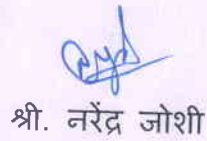 श्री. नरेंद्र जोशी